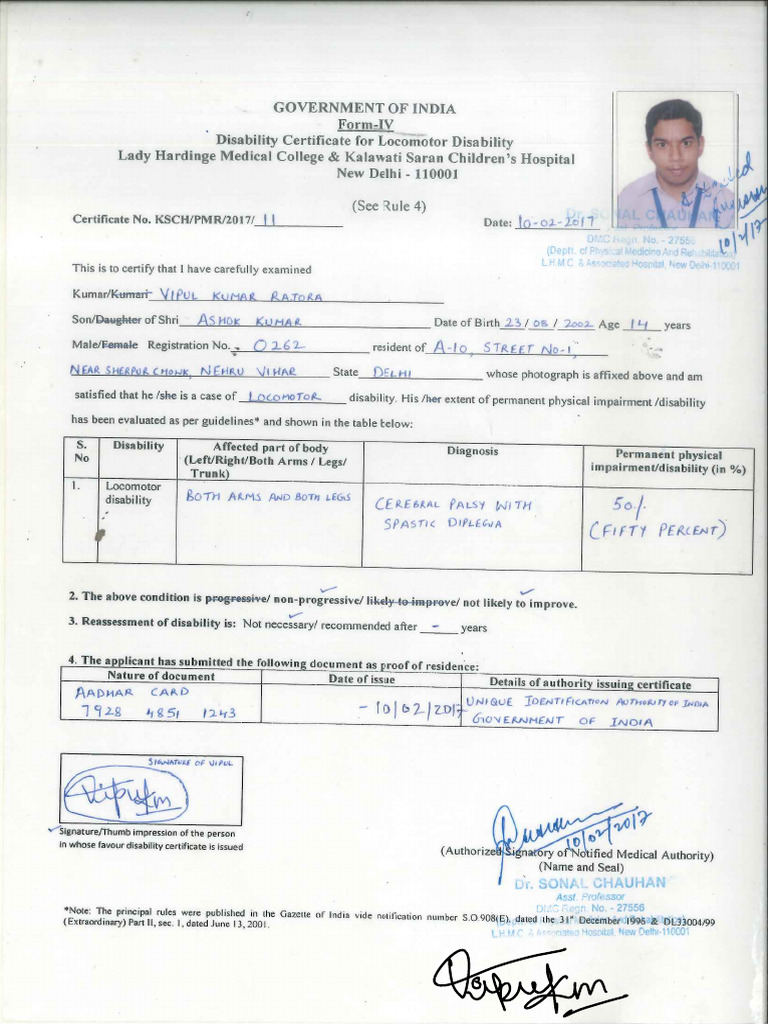 GOVERNMENT OF INDIA
Form-IV
Disability Certificate for Locomotor Disability
Lady Hardinge Medical College & Kalawati Saran Children's Hospital
New Delhi - 110001
(See Rule 4)
Attested
10/2/17
Dr. SONAL CHAUHAN
Asst. Professor
DMC Regn. No. - 27556
(Deptt. of Physical Medicine And Rehabilitation)
L.H.M.C. & Associated Hospital, New Delhi-110001
Certificate No. KSCH/PMR/2017/ 11 Date: 10-02-2017
This is to certify that I have carefully examined
Kumar/Kumari VIPUL KUMAR RAJORA
Son/Daughter of Shri ASHOK KUMAR Date of Birth 23/08/2002 Age 14 years
Male/Female Registration No. 0262 resident of A-10, STREET No-1,
NEAR SHERPUR CHOWK, NEHRU VIHAR State DELHI whose photograph is affixed above and am
satisfied that he /she is a case of LOCOMOTOR disability. His /her extent of permanent physical impairment /disability
has been evaluated as per guidelines* and shown in the table below:
S. No Disability Affected part of body (Left/Right/Both Arms / Legs/ Trunk) Diagnosis Permanent physical impairment/disability (in %)
1. Locomotor disability BOTH ARMS AND BOTH LEGS CEREBRAL PALSY WITH SPASTIC DIPLEGIA 50% (FIFTY PERCENT)
2. The above condition is progressive/ non-progressive/ likely to improve/ not likely to improve.
3. Reassessment of disability is: Not necessary/ recommended after - years
4. The applicant has submitted the following document as proof of residence:
Nature of document Date of issue Details of authority issuing certificate
AADHAR CARD 7928 4851 1243 - 10/02/2017 UNIQUE IDENTIFICATION AUTHORITY OF INDIA GOVERNMENT OF INDIA
SIGNATURE OF VIPUL
Signature/Thumb impression of the person
in whose favour disability certificate is issued
10/02/2017
(Authorized Signatory of Notified Medical Authority)
(Name and Seal)
Dr. SONAL CHAUHAN
Asst. Professor
DMC Regn. No. - 27556
L.H.M.C. & Associated Hospital, New Delhi-110001
*Note: The principal rules were published in the Gazette of India vide notification number S.O.908(E), dated the 31st December 1996 & DL33004/99
(Extraordinary) Part II, sec. 1, dated June 13, 2001.